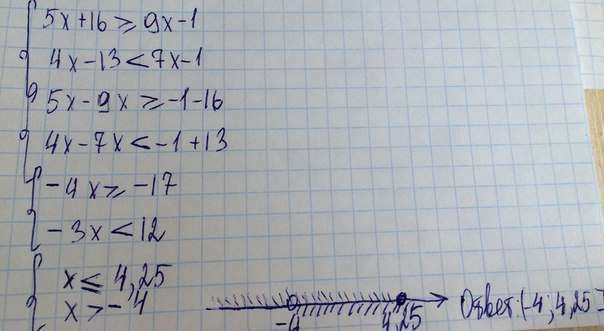 5x+16≥9x-1
4x-13<7x-1
5x-9x≥-1-16
4x-7x<-1+13
-4x≥-17
-3x<12
x≤4,25
x>-4
-4 4,25 Ответ: (-4; 4,25]